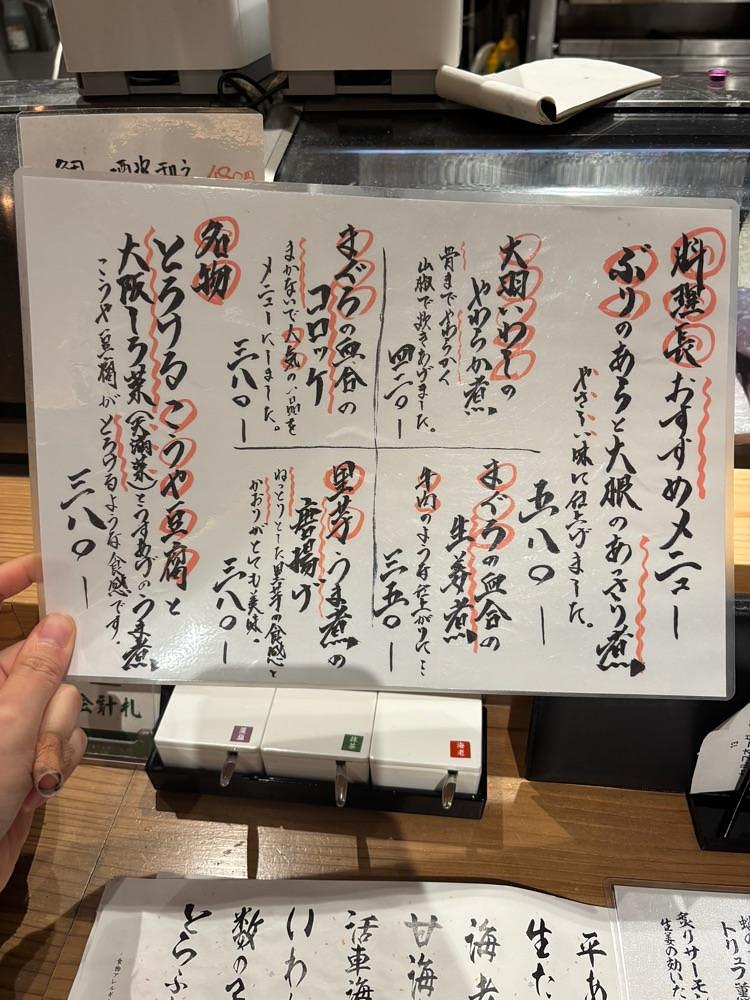 料理長おすすめメニュー
ぶりのあらと大根のあっさり煮
やさしい味に仕上げました。
五八〇ー
大羽いわしの
やわらか煮
骨までやわらかく
山椒で炊きあげました。
四二〇ー
まぐろの血合の
生姜煮
牛肉のような仕上がりに
三五〇ー
まぐろの血合の
コロッケ
まかないで人気の一品を
メニューにしました。
三八〇ー
里芋うま煮の
唐揚げ
ねっとりとした里芋の食感と
かおりがとても美味。
三八〇ー
名物
とろける こうや豆腐と
大阪しろ菜(天満菜)とうすあげのうま煮
こうや豆腐がとろけるような食感です。
三八〇ー
480円
会計札
藻塩
抹茶
海老
平あ
生た
海老
甘海
活車海
いわ
数の
とらふ
食物アレルギ
トリュフ
炙りサーモ
生姜の効いた